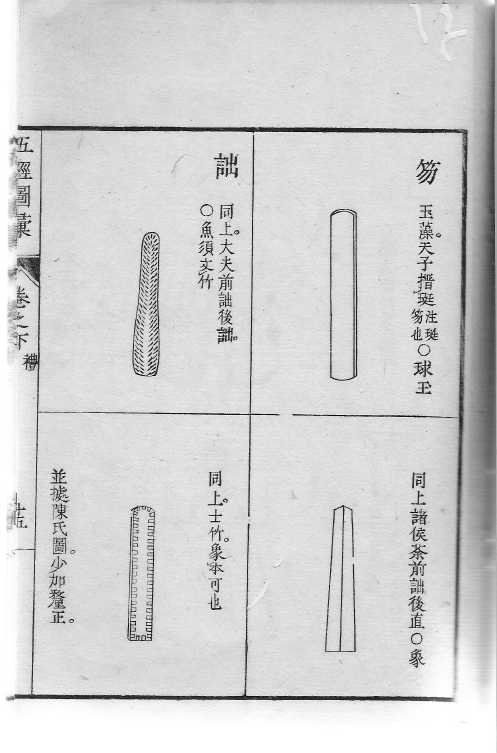 笏
玉藻。天子搢珽注珽笏也○球玉
同上諸侯荼前詘後直○象
詘
同上大夫前詘後詘。
○魚須文竹
同上。士竹。象本可也
並據陳氏圖。少加釐正。
五經圖彙
卷之下
禮
十五